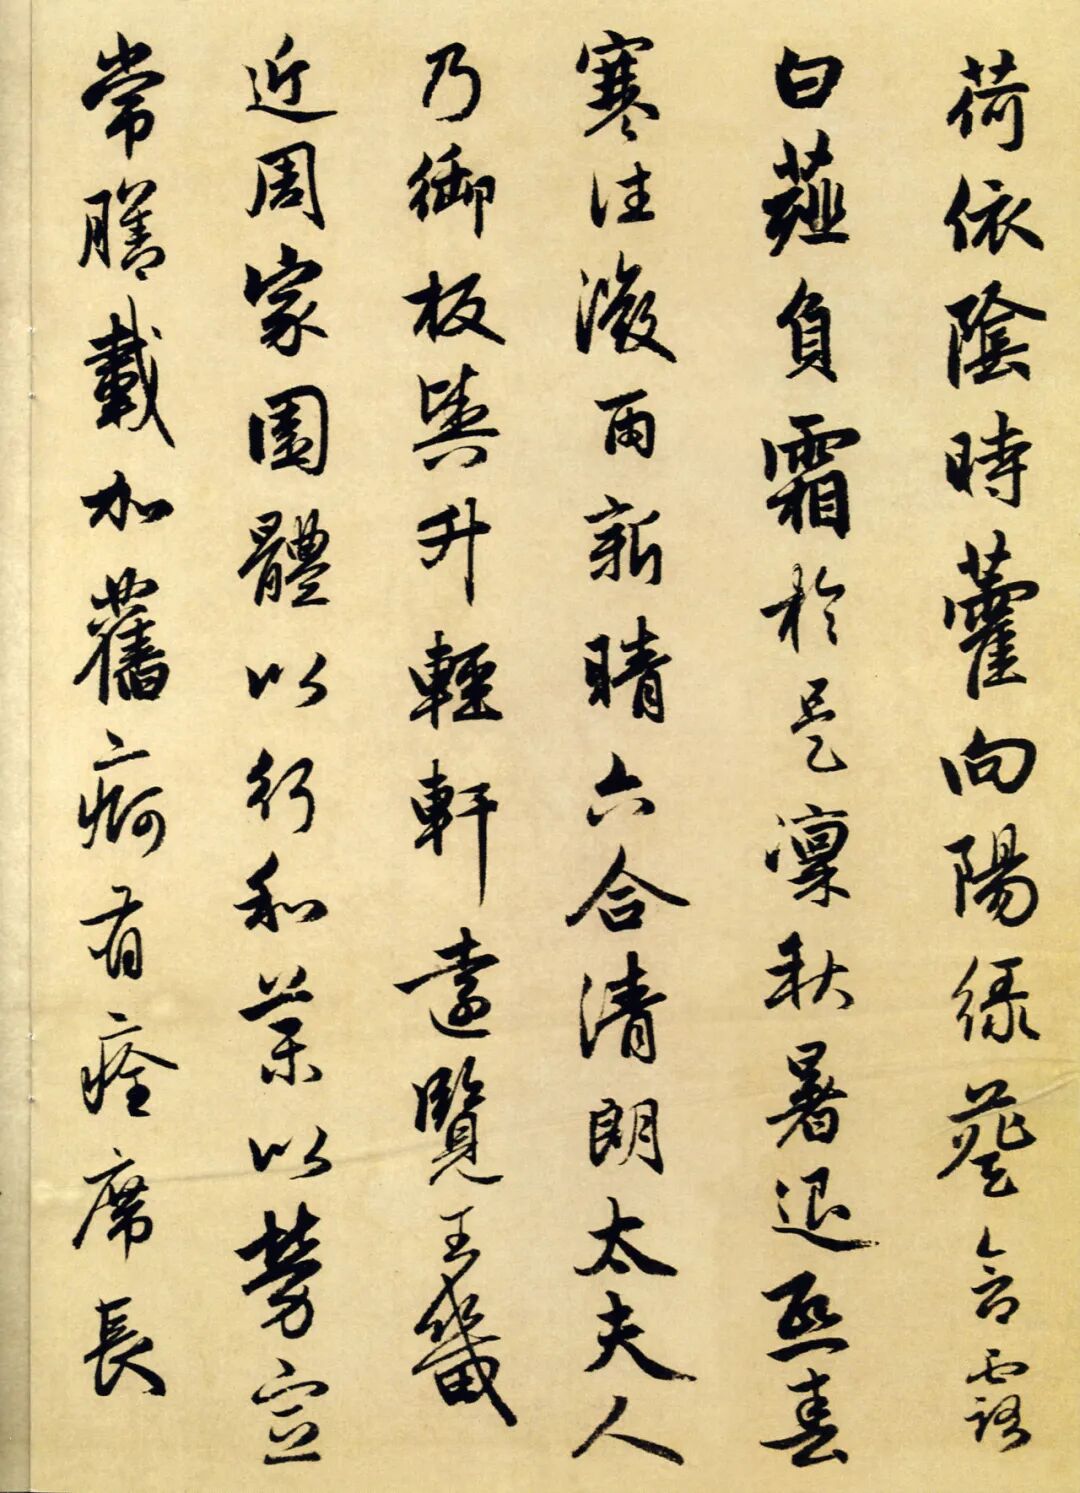 荷依陰時藿向陽綠葵含露
白薤負霜於是凜秋暑退熙春
寒往微雨新晴六合清朗太夫人
乃御板輿升輕軒遠覽王畿
近周家園體以行和藥以勞宣
常膳載加舊痾有痊席長